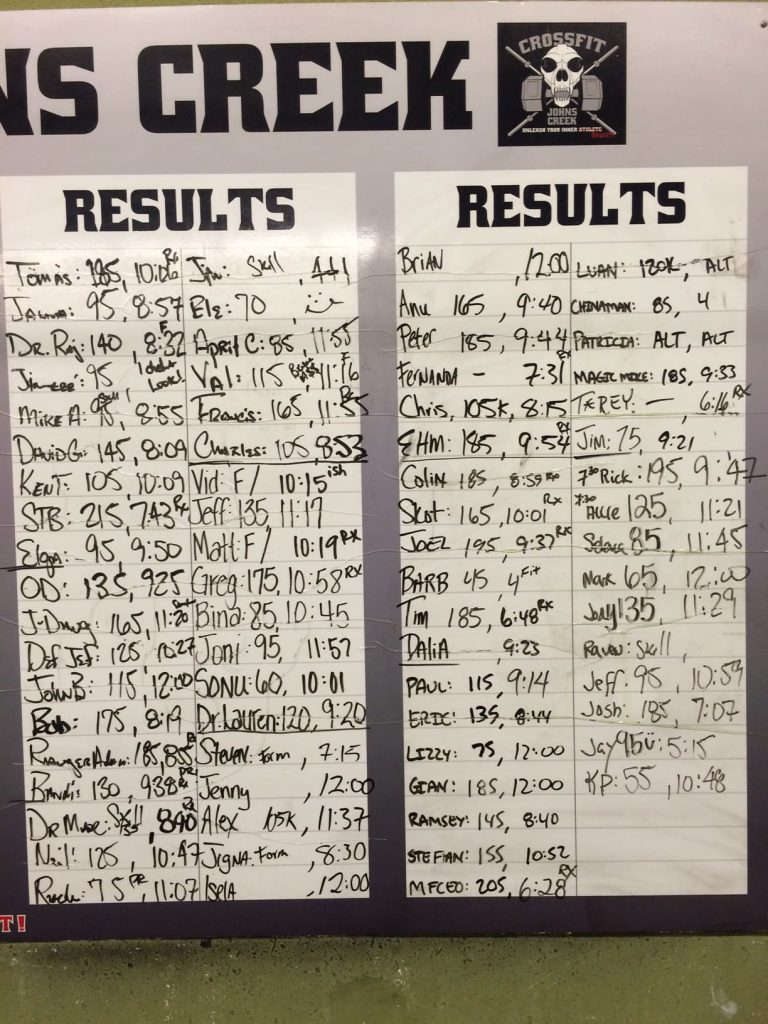 NS CREEK
CROSSFIT
JOHNS
CREEK
UNLEASH YOUR INNER ATHLETE
RESULTS
Tomás: 185, 10:06 Rx
95, 8:57
Dr. Raj: 140, 8:32
95,
Mike A: 95, 8:55
David G: 145, 8:09
Kent: 105, 10:09
STB: 215, 7:43 Rx
Elga: 95, 9:50
OD: 135, 925
J-Dawg: 165, 11:20
Def Jef: 125, 10:27
John B: 115, 12:00
Bob: 175, 8:19
Ranger Adam: 185, 855
130, 938 Rx
Dr Marc: Skill, 840
Neil: 125, 10:47
75 PR, 11:07
Jim: Skill, 4+1
Ele: 70,
April C: 85, 11:55
Val: 115, 11:16
Francis: 165, 11:55
Charles: 105, 853
Vid: F/ 10:15 ish
Jeff: 135, 11:17
Matt: F/ 10:19 RX
Greg: 175, 10:58 RX
Bina: 85, 10:45
Joni: 95, 11:57
Sonu: 60, 10:01
Dr. Lauren: 120, 9:20
Steven: Form, 7:15
Jenny, 12:00
Alex 105K, 11:37
Jigna: Form, 8:30
Isela, 12:00
RESULTS
Brian, 12:00
Anu 165, 9:40
Peter 185, 9:44
Fernanda - 7:31 Rx
Chris, 105K, 8:15
EHM: 185, 9:54 Rx
Colin 185, 8:59 Rx
Skot: 165, 10:01 Rx
Joel 195, 9:37 RX
Barb 45, 4 Fit
Tim 185, 6:48 Rx
Dalia, 9:23
Paul: 115, 9:14
Eric: 135, 8:44
Lizzy: 75, 12:00
Gian: 185, 12:00
Ramsey: 145, 8:40
Stefian: 155, 10:52
MFCEO: 205, 6:28 RX
Luan: 120K, ALT
Chinaman: 85, 4
Patricia: ALT, ALT
Magic Mike: 185, 9:33
T-Rey: —, 6:16 RX
Jim: 75, 9:21
7:30 Rick: 195, 9:47
7:30 125, 11:21
85, 11:45
Mark 65, 12:00
Jay 135, 11:29
Raven: Skill,
Jeff: 95, 10:59
Josh: 185, 7:07
Jay 95 5:15
KP: 55, 10:48
T!